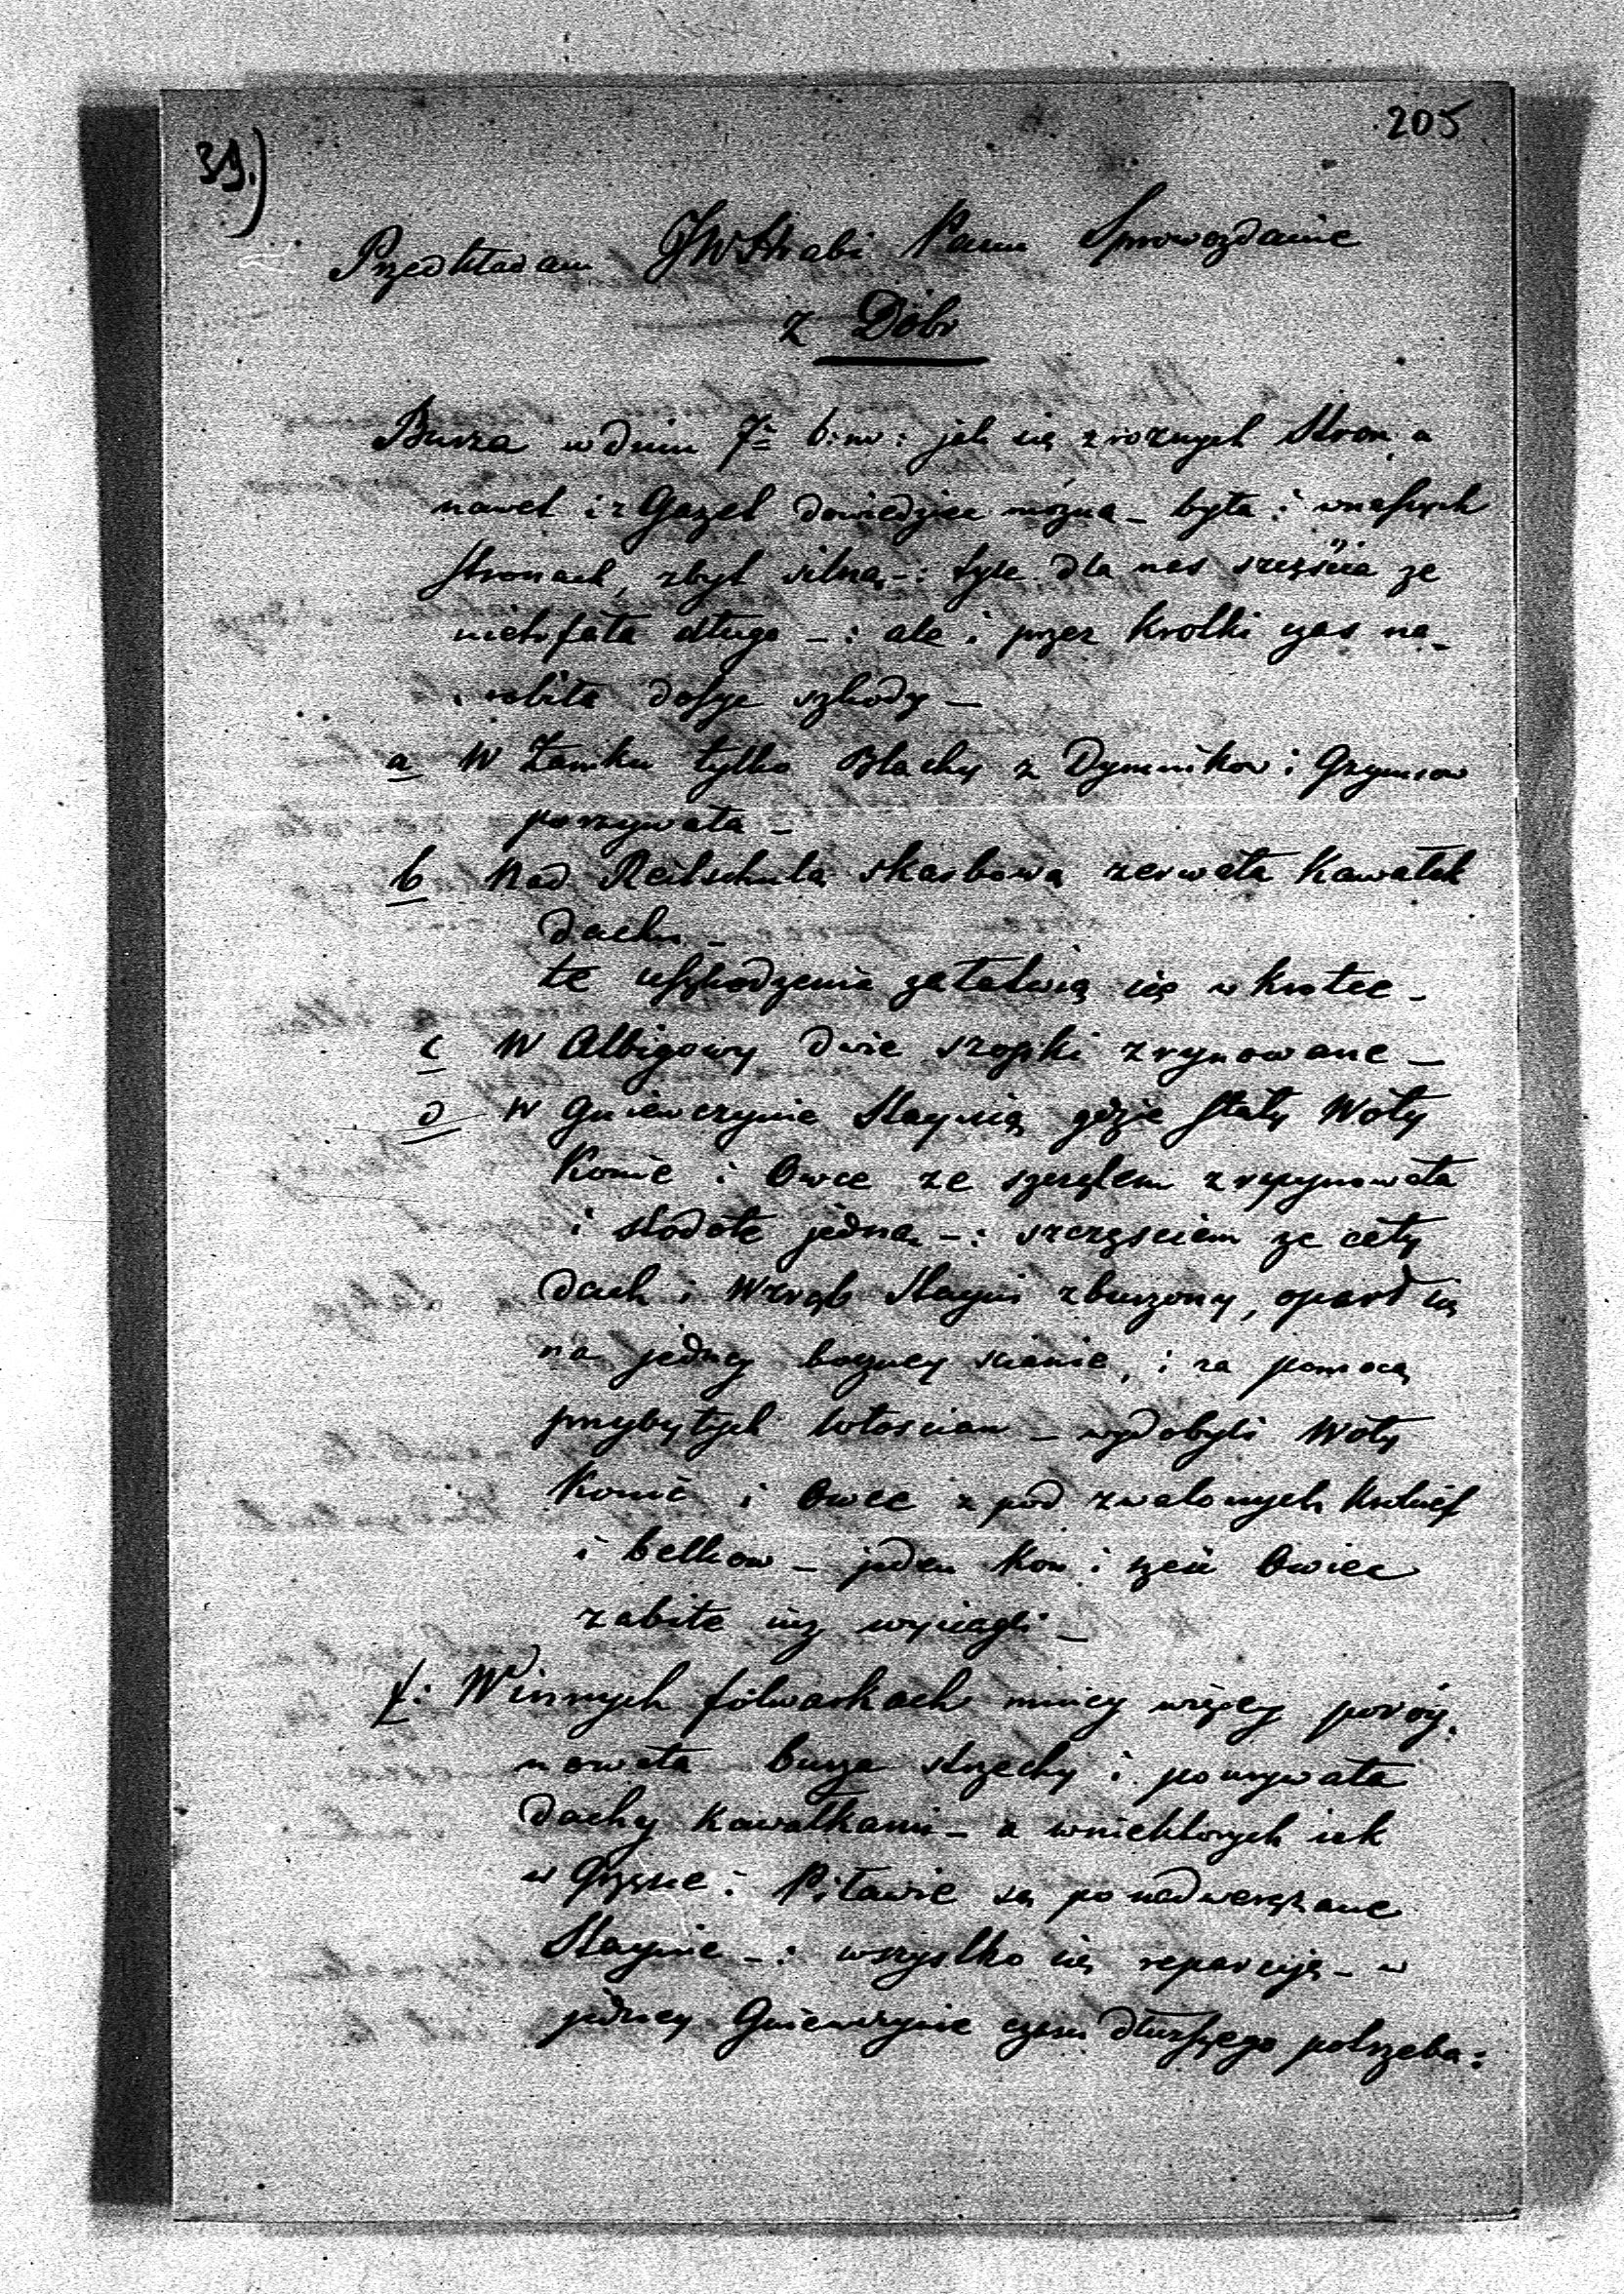 205
39.)
Przedkładam JW Hrabi Panu Sprawozdanie
z Dóbr
Burza w dniu 7º b: m: jak się z roznych stron a
nawet i z Gazet dowiedziec można – była i w naszych
stronach zbyt silną –: tyle dla nas szczęścia ze
nietrfała długo –: ale i przez krotki czas na-
robiła dosyc szkody –
a W Zamku tylko Blachy z Dymnikow i Gzymsow
pozrywała –
b Nad Reitschulą skarbową zerwała kawałek
dachu –
te uszkodzenia załatwią się w krotce –
c W Albigowy dwie szopki zrynowane –
d W Gniewczynie Staynią gdzie stały Woły
Konie i Owce ze szczętem zrynowała
i stodołę jedna –: szczęsciem ze cały
dach i Wzrąb Stayni zburzony, oparł się
na jedney boczney scianie, i za pomocą
przybyłych włoscian – wydobyli Woły
Konie i Owce z pod zwalonych Krokief
i belkow – jeden Kon i szesc Owiec
zabite już wyciągli –
f: W innych folwarkach mniey więcey porój-
nowała burza strzechy i pourywała
dachy kawałkami – a w niektorych iak
w Gręsce i Piławie są ponadweręzane
Staynie –: wszystko się reparuję – w
jedney Gniewczynie czasu dłuższego potrzeba: